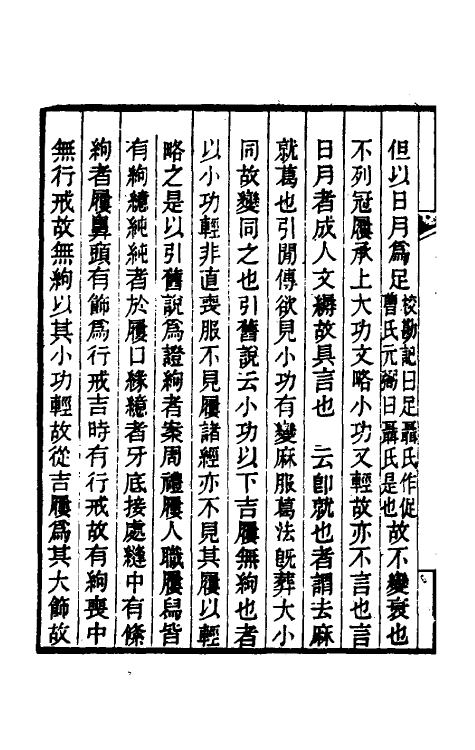 但以日月爲足校勘記曰足聶氏作促曹氏元弼曰聶氏是也故不變衰也
不列冠屨承上大功文略小功又輕故亦不言也言
日月者成人文縟故具言也　云卽就也者謂去麻
就葛也引閒傳欲見小功有變麻服葛法旣葬大小
同故變同之也引舊說云小功以下吉屨無絇也者
以小功輕非直喪服不見屨諸經亦不見其屨以輕
略之是以引舊說爲證絇者案周禮屨人職屨舄皆
有絇繶純純者於屨口緣繶者牙底接處縫中有絛
絇者屨鼻頭有飾爲行戒吉時有行戒故有絇喪中
無行戒故無絇以其小功輕故從吉屨爲其大飾故